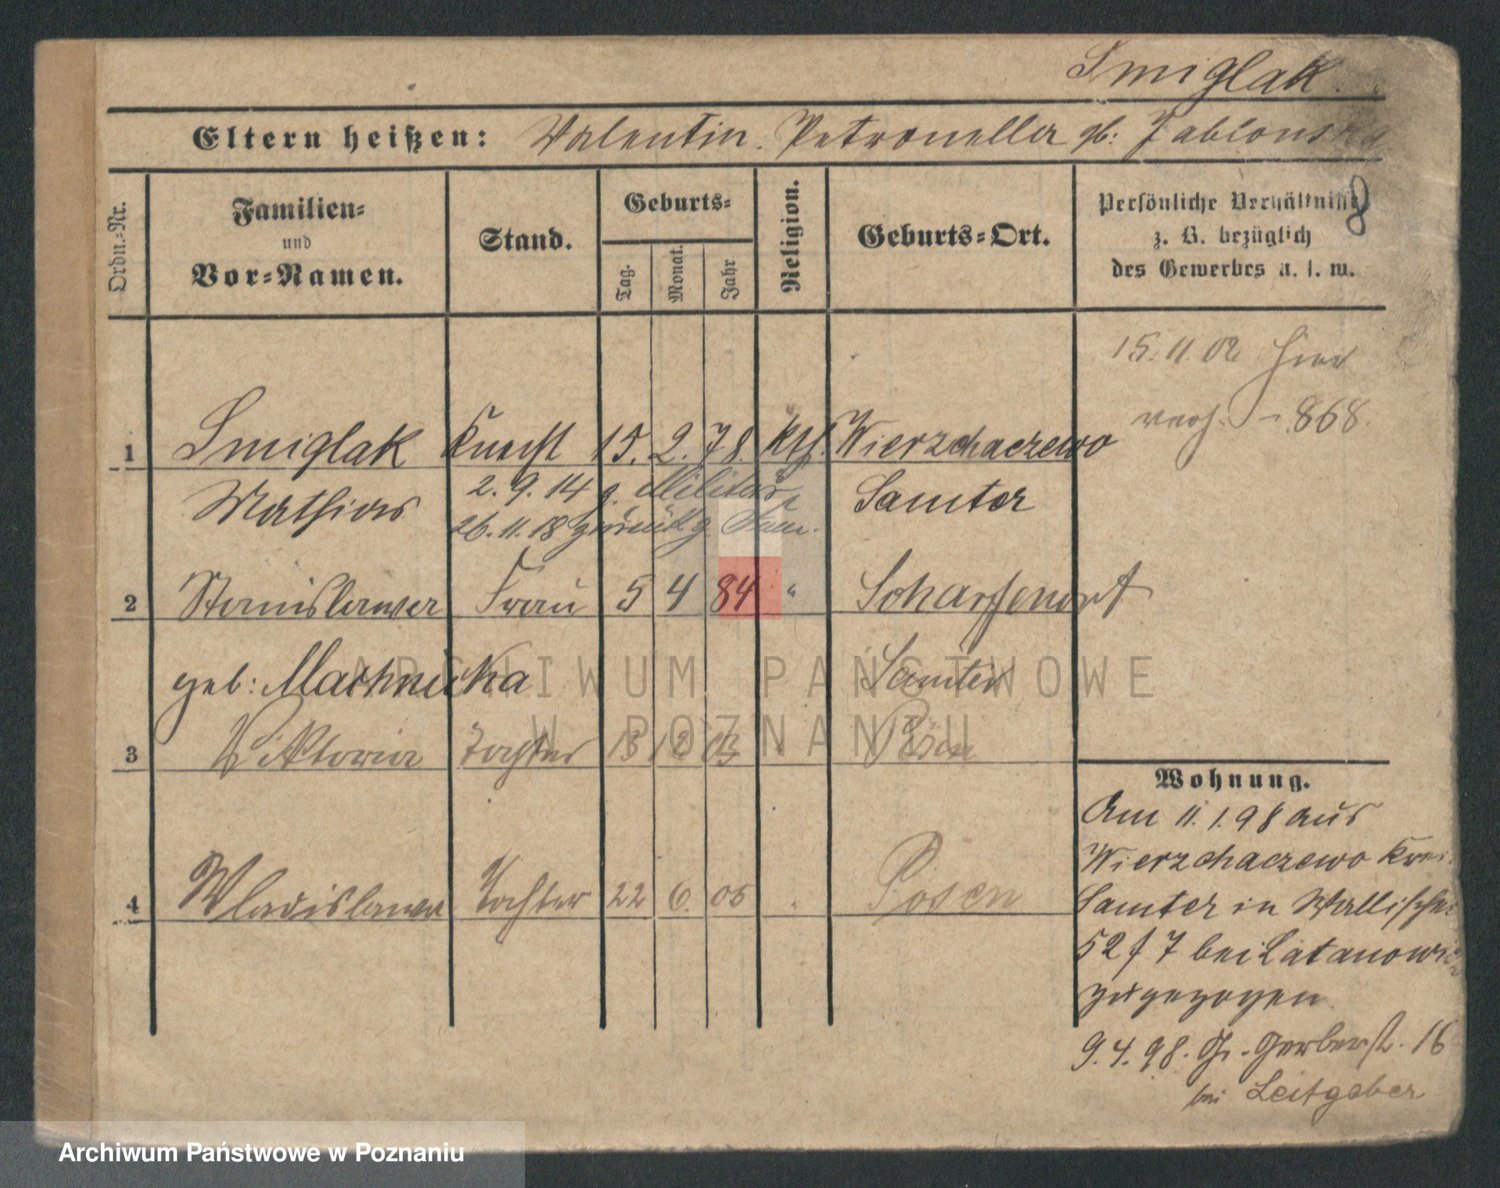 Smiglak
Eltern heißen: Valentin. Petronella gb: Jablonska
Ordn.-Nr.
Familien-
und
Vor-Namen.
Stand.
Geburts-
Tag.
Monat.
Jahr
Religion.
Geburts-Ort.
Persönliche Verhältnisse
z. B. bezüglich
des Gewerbes u. s. w.
8
15.11.02 hier
verh. 868.
1 Smiglak Knecht 15. 2. 78. kth. Wierzchaczewo
Mathias 2. 9. 14 z. Militär Samter
26. 11. 18 zurück z. Fam.
2 Stanislawa Frau 5 4 84 " Scharfenort
geb: Machnicka Samter
3 Viktoria Tochter 13 12 03 " Posen
4 Wladislawa Tochter 22 6 05 " Posen
Wohnung.
Am 11.1.98 aus
Wierzchaczewo Kreis
Samter in Wallischei
52 f 7 bei Latanowicz
zugezogen
9.4.98. Gr. Gerberst. 16
bei Leitgeber
ARCHIWUM PAŃSTWOWE
W POZNANIU
Archiwum Państwowe w Poznaniu